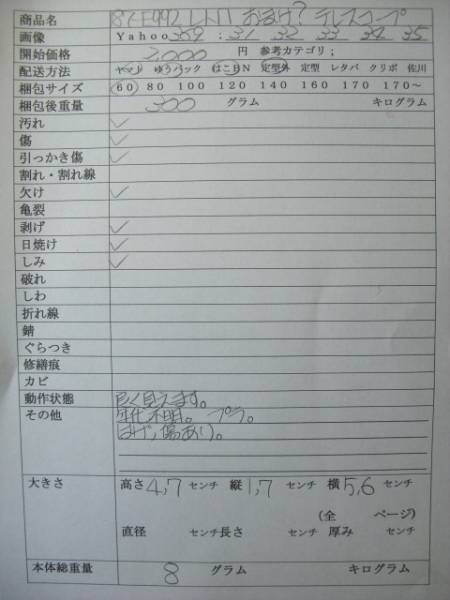 商品名 87-F992 レトロ おまけ? テレスコープ
画像 Yahoo 359 : 31 32 33 34 35
開始価格 2,000 円 参考カテゴリ;
配送方法 ヤマト ゆうパック はこBN 定型外 定型 レタパ クリポ 佐川
梱包サイズ 60 80 100 120 140 160 170 170～
梱包後重量 300 グラム キログラム
汚れ ✓
傷 ✓
引っかき傷 ✓
割れ・割れ線
欠け ✓
亀裂
剥げ ✓
日焼け ✓
しみ ✓
破れ
しわ
折れ線
錆
ぐらつき
修繕痕
カビ
動作状態 良く見えます。
その他 年代不明。 プラ。
はげ,傷あり。
大きさ 高さ 4,7 センチ 縦 1,7 センチ 横 5,6 センチ
(全 ページ)
直径 センチ 長さ センチ 厚み センチ
本体総重量 8 グラム キログラム